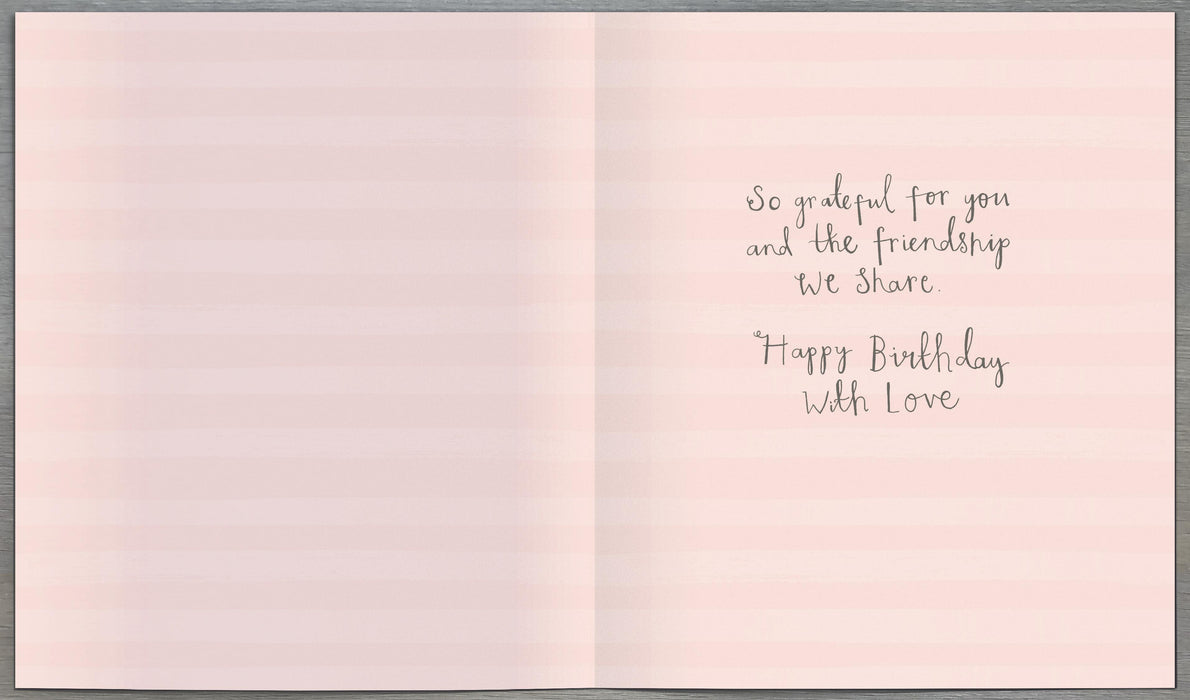 So grateful for you
and the friendship
We Share.
Happy Birthday
With Love